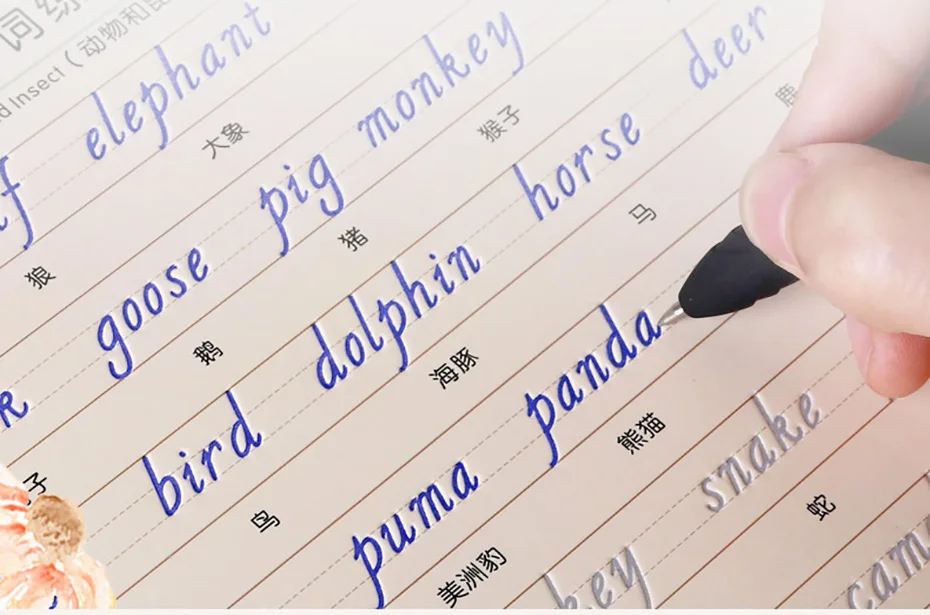 词
Insect（动物和昆
elephant
狼 大象
goose pig monkey
子 鹅 猪 猴子
bird dolphin horse deer
鸟 海豚 马 鹿
puma panda
美洲豹 熊猫
key snake
蛇
cam